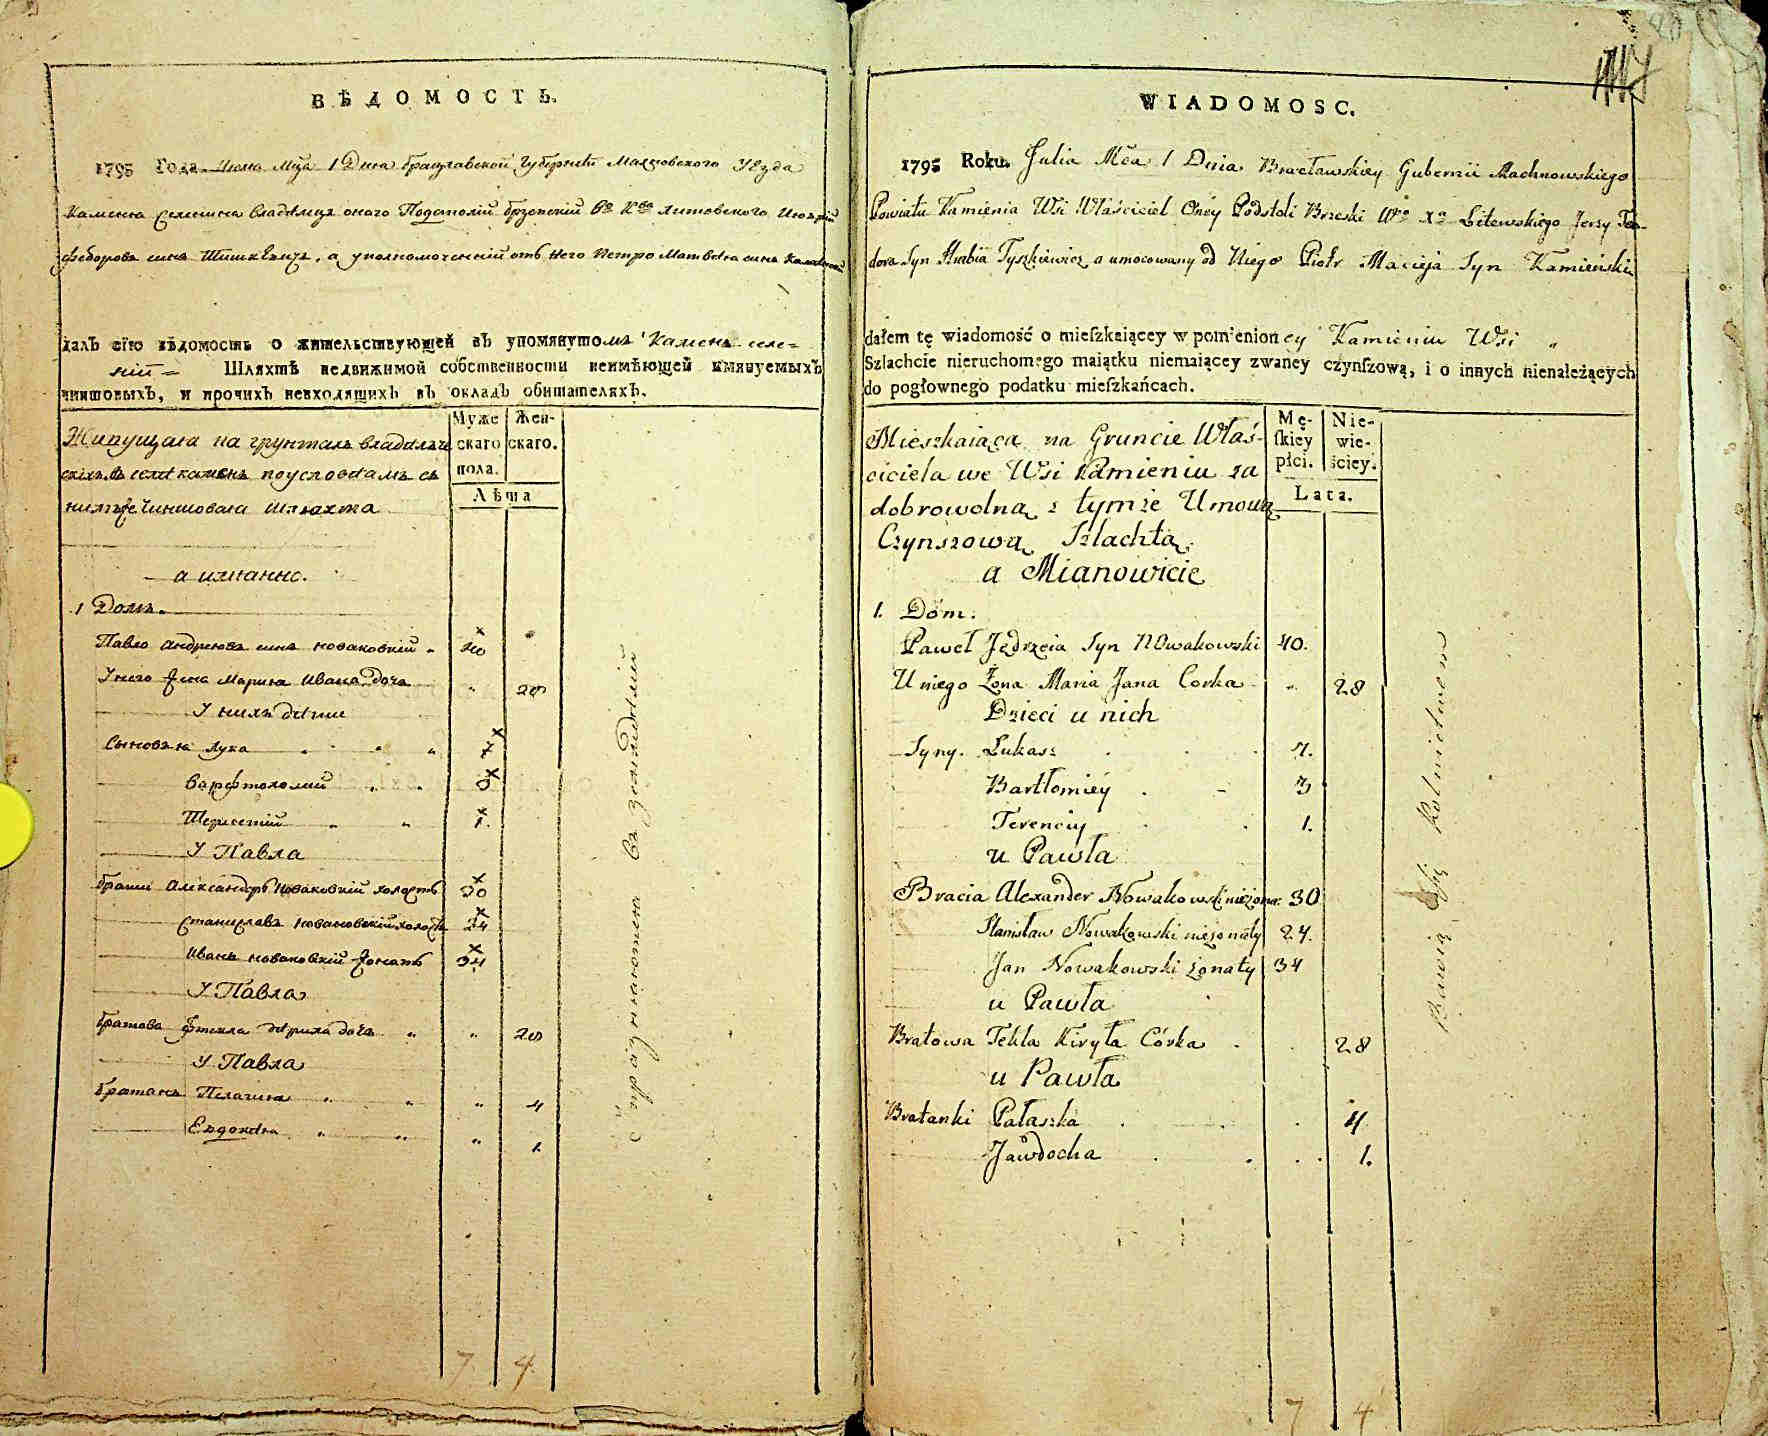 ВѢДОМОСТЬ.
1795 Года Июля Мца 1 Дня Брацлавской Губернїи Махновского Уѣзда
Каменя Селения владѣлца оного Подстолїй Брзескїй В° Ква Литовского
Федоровъ синъ Тишкѣвичъ, а уполномоченнїй отъ него Петро Матвѣя синъ
далъ сїю вѣдомость о жительствующей въ упомянутомъ Камень селе=
нїи = Шляхтѣ недвижимой собственности неимѣющей имянуемыхъ
чиншовыхъ, и прочихъ невходящихъ въ окладъ обитателяхъ.
Муже скаго пола. Жен- скаго.
Лѣта
Живущая на грунтахъ
селѣ камень по условиамъ съ
нимъ же Чиншовая Шляхта
а имянно.
1 Домъ.
Павло Андреювъ синъ Новаковскїй 40
У него жена Марина Ивана дочь " 28
У нихъ дѣти
Сыновья Лука 7
Варфтоломїй 3
Теренетїй 1.
У Павла
Братия Александръ Новаковскїй холостъ 30
Станиславъ Новаковскїй холостъ 24
Иванъ Новаковскїй жонатъ 34
У Павла
Братова Фтекла Кирила дочь " 28
У Павла
Пелагия " 4
Евдокїя " 1.
упражняются въ земледѣлїй
7. 4.
WIADOMOSC.
1795 Roku. Julia Mca 1 Dnia Bracławskiey Gubernii Machnowskiego
Powiatu Kamienia Wsi Właściciel Oney Podstoli Brzeski Litewskiego Jerzy Teo-
dora Syn Hrabia Tyszkiewicz a umocowany od Niego Piotr Macieja Syn Kamieński
dałem tę wiadomość o mieſzkaiącey w pomienioney Kamieniu Wsi "
Szlachcie nieruchomego maiątku niemaiącey zwaney czynſzową, i o innych nienależących
do pogłownego podatku mieſzkańcach.
Mę- ſkiey płci. Nie- wie- ściey.
Lata.
Mieszkaiąca na Gruncie Właś-
ciciela we Wsi Kamieniu za
dobrowolną z tymże Umową
Czynszową Szlachtą.
a Mianowicie
1. Dom.
Paweł Jędrzeia Syn Nowakowski 40.
U niego Żona Maria Jana Corka " 28
Dzieci u nich
Syny. Łukasz 7.
Bartłomiey 3
Terenciy 1.
u Pawła
Bracia Alexander Nowakowski nieżona: 30
Stanisław Nowakowski nieżonaty 24.
Jan Nowakowski żonaty 34
u Pawła
Bratowa Tekla Kiryła Córka 28
u Pawła
Bratanki Pałaszka 4
Jawdocha 1.
Bawią się Rolnictwem
7 4